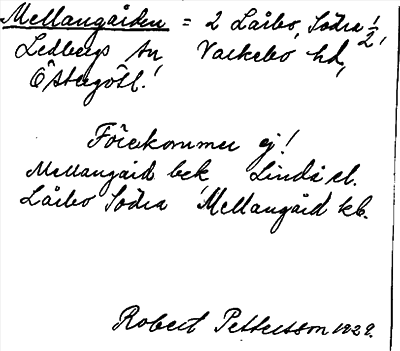 Mellangården = 2 Låibo, Södra 1/2,
Ledbergs sn Valkebo hd,
Östergötl.
Förekommer ej!
Mellangård bek Lindå el.
Låibo Södra Mellangård kb.
Robert Pettersson 1929.